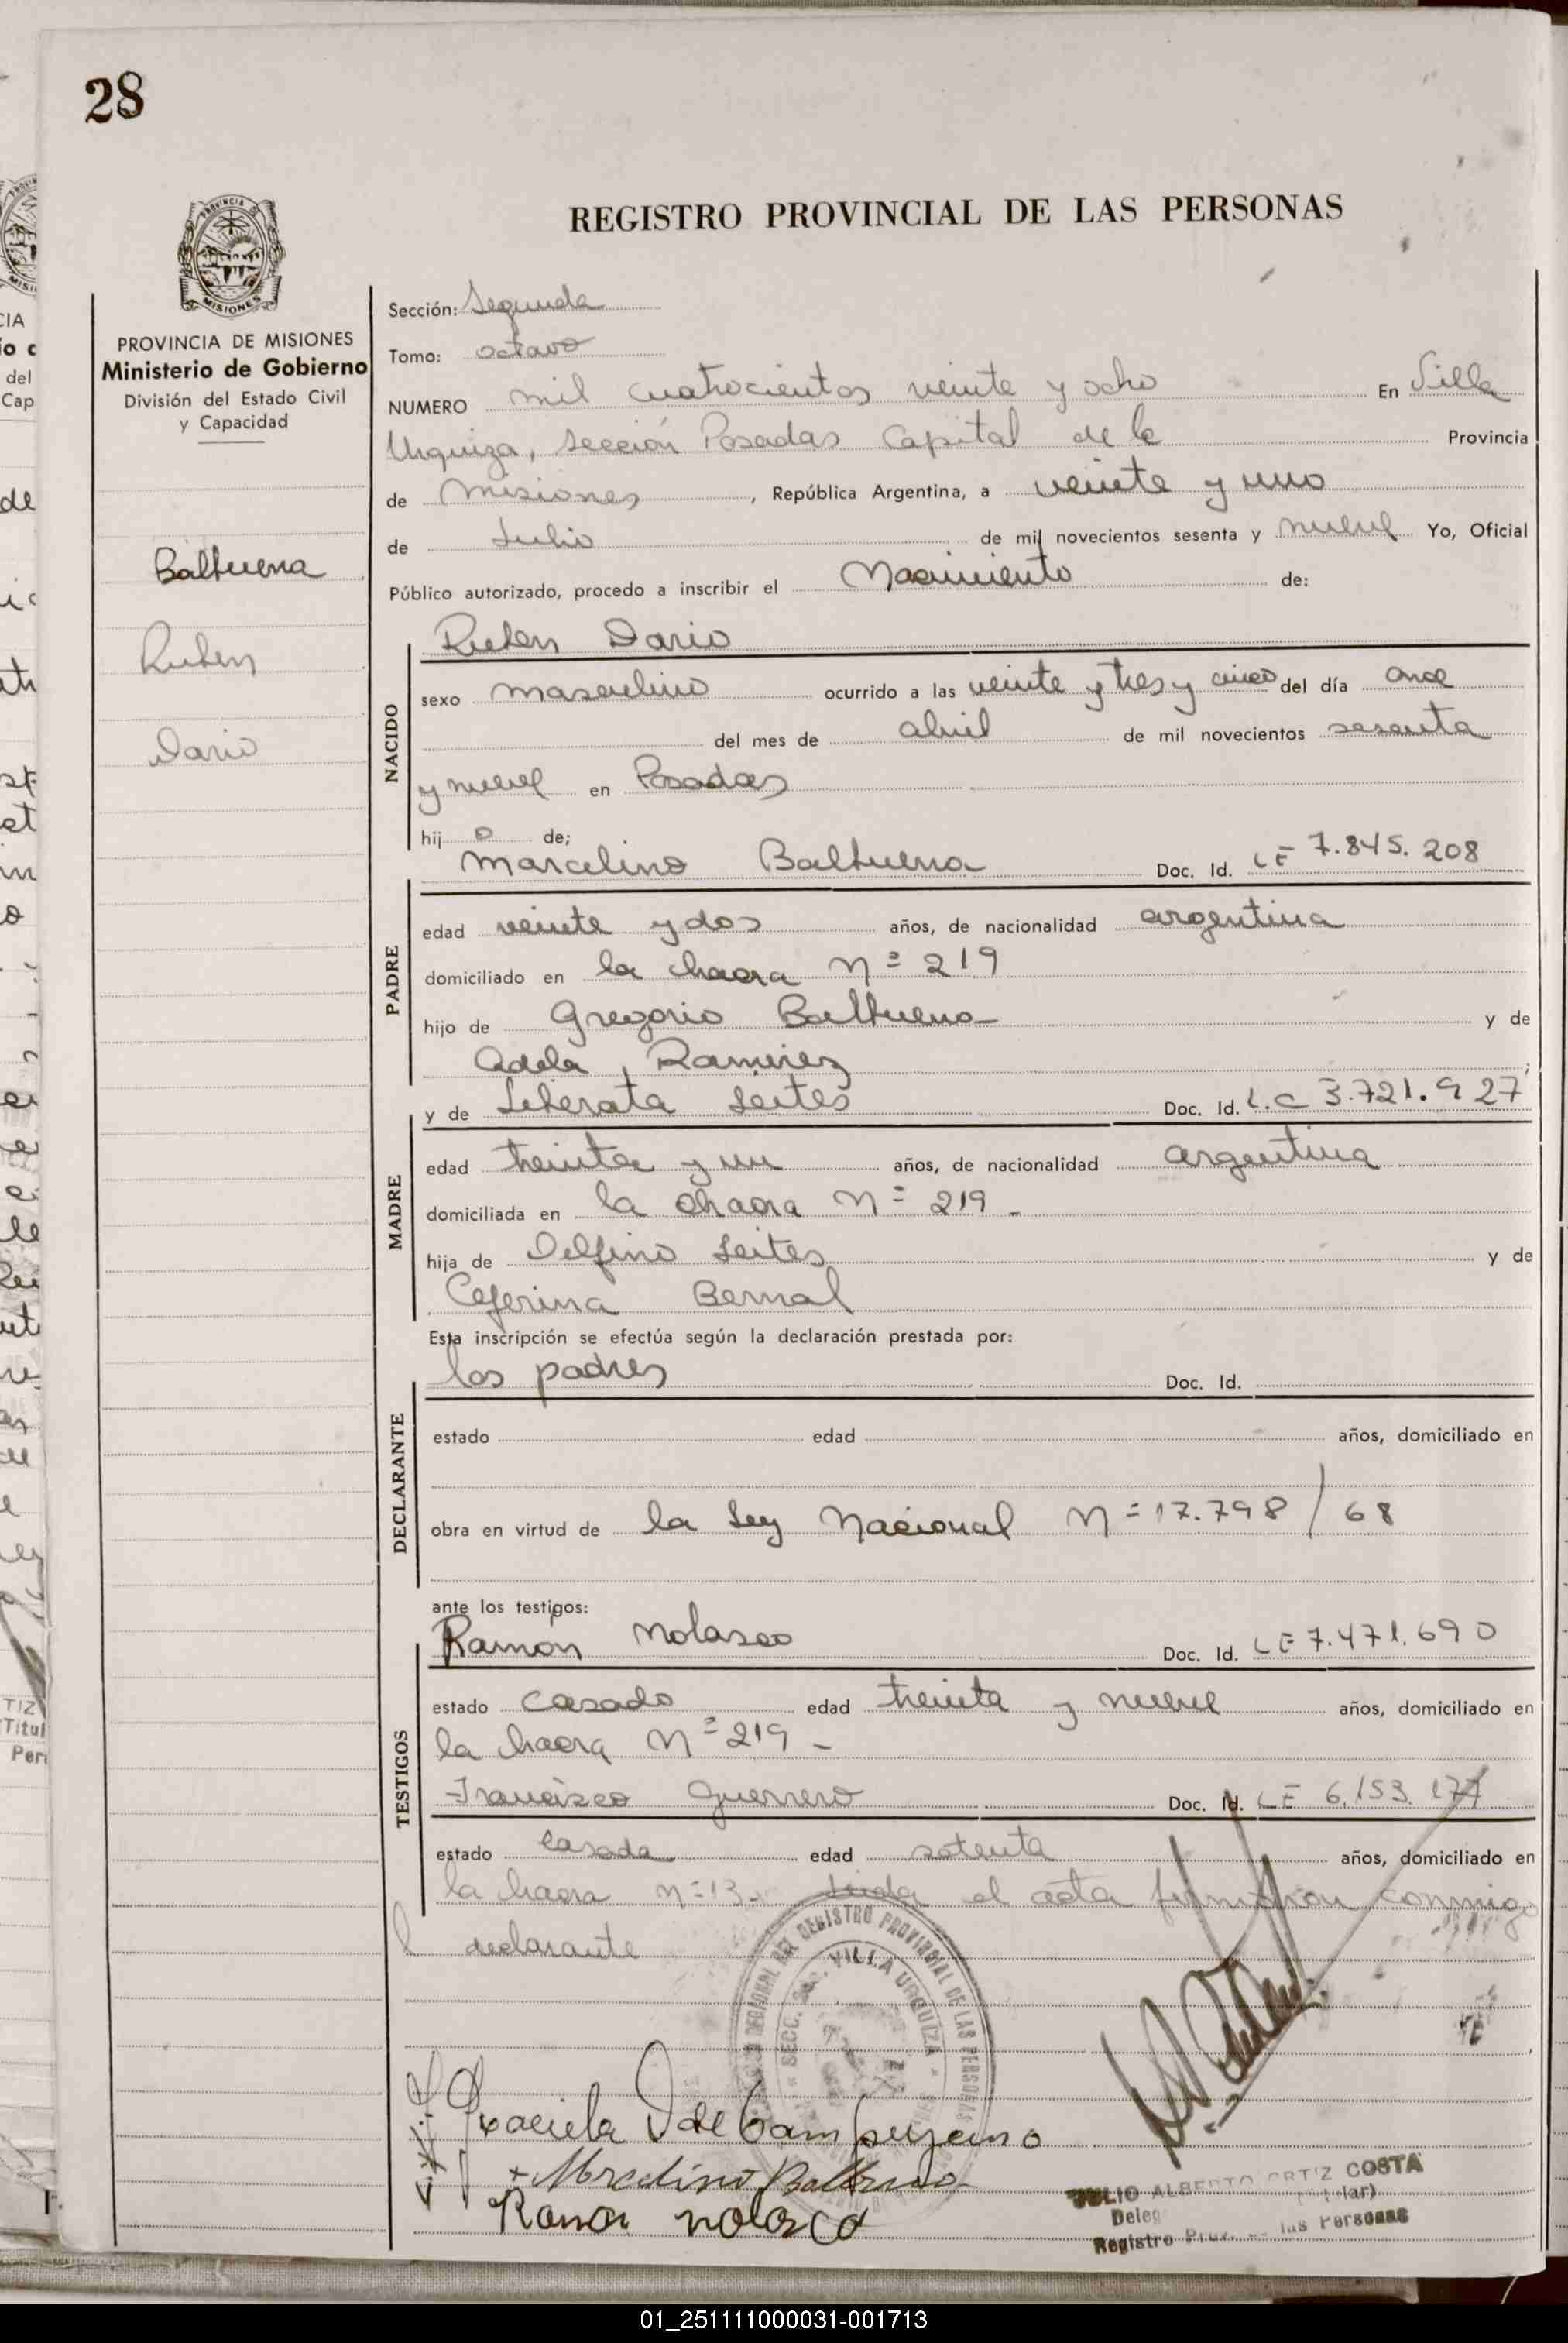 28
REGISTRO PROVINCIAL DE LAS PERSONAS
PROVINCIA DE MISIONES
Ministerio de Gobierno
División del Estado Civil
y Capacidad
Baltuena
Ruben
Dario
Sección: Segunda
Tomo: octavo
NUMERO mil cuatrocientos veinte y ocho En Villa
Urquiza, Sección Posadas Capital de la Provincia
de Misiones, República Argentina, a veinte y uno
de Julio de mil novecientos sesenta y nueve Yo, Oficial
Público autorizado, procedo a inscribir el Nacimiento de:
Ruben Dario
NACIDO
sexo masculino ocurrido a las veinte y tres y cinco del día once
del mes de abril de mil novecientos sesenta
y nueve en Posadas
hijo de;
Marcelino Baltuena Doc. Id. LE 7.845.208
PADRE
edad veinte y dos años, de nacionalidad argentina
domiciliado en la chacra Nº 219
hijo de Gregorio Baltuena y de
Adela Ramirez;
y de Liberata Leites Doc. Id. L.C 3.721.927
MADRE
edad treinta y un años, de nacionalidad argentina
domiciliada en la chacra Nº 219 -
hija de Delfino Leites y de
Ceferina Bernal
Esta inscripción se efectúa según la declaración prestada por:
los padres Doc. Id.
DECLARANTE
estado edad años, domiciliado en
obra en virtud de la Ley Nacional Nº 17.798/68
ante los testigos:
Ramon Nolasco Doc. Id. LE 7.471.690
TESTIGOS
estado casado edad treinta y nueve años, domiciliado en
la chacra Nº 219 -
Francisco Guerrero Doc. Id. LE 6.153.177
estado casada edad setenta años, domiciliado en
la chacra Nº 13. Leida el acta firmaron conmigo
declarante
REGISTRO PROVINCIAL DE LAS PERSONAS
SECC. VILLA URQUIZA
Graciela de Campuzano
+ Marcelino Baltuena
Ramon Nolasco
JULIO ALBERTO ORTIZ COSTA
Registro Prov. de las Personas
01_251111000031-001713